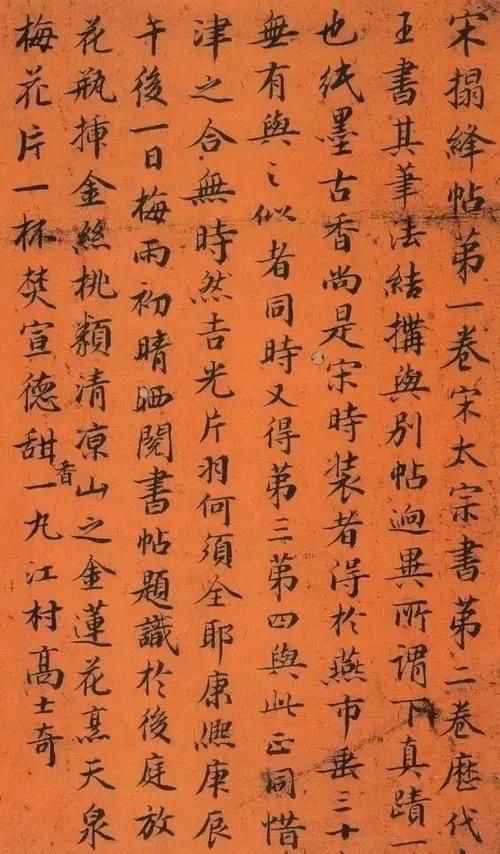 宋搨絳帖第一卷宋太宗書第二卷歷代
王書其筆法結搆與別帖迥異所謂下真蹟一
也紙墨古香尚是宋時装者得於燕市垂三十
無有與之似者同時又得第三第四與此正同惜
津之合無時然吉光片羽何須全耶康熈庚辰
午後一日梅雨初晴晒閱書帖題識於後庭放
花瓶揷金絲桃類清凉山之金蓮花烹天泉
梅花片一杯焚宣德甜香一丸江村高士奇